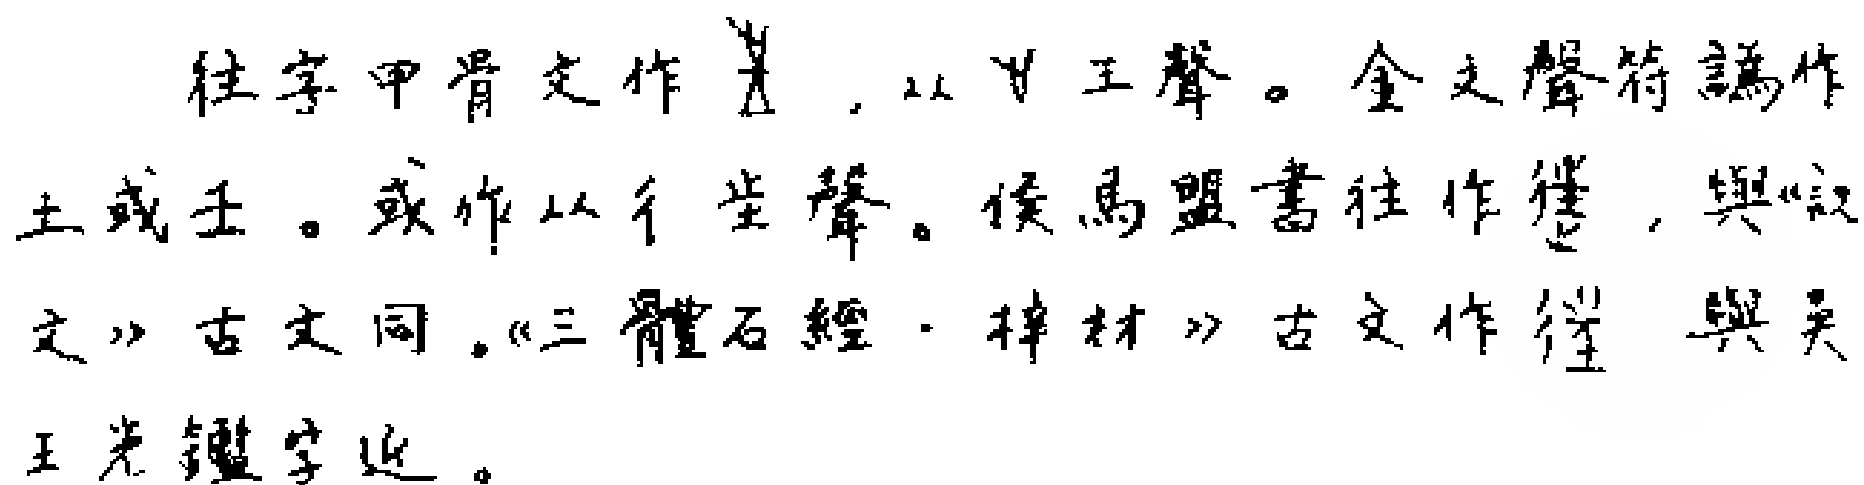 往字甲骨文作，从 王聲。金文聲符譌作
土或𡈼。或作从彳㞷聲。侯馬盟書往作，與《說
文》古文同。《三體石經·梓材》古文作 與吴
王光鑑字近。